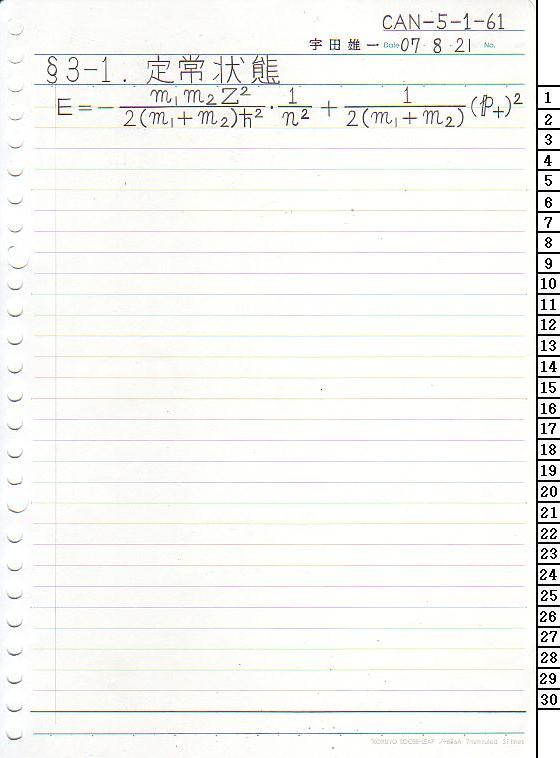 CAN-5-1-61
宇田雄一 Date 07・8・21 No.
§3-1. 定常状態
E = - m₁m₂Z² / 2(m₁+m₂)ħ² · 1/n² + 1 / 2(m₁+m₂) (ℙ₊)²
1
2
3
4
5
6
7
8
9
10
11
12
13
14
15
16
17
18
19
20
21
22
23
24
25
26
27
28
29
30
KOKUYO LOOSE-LEAF 7mm ruled 31 lines